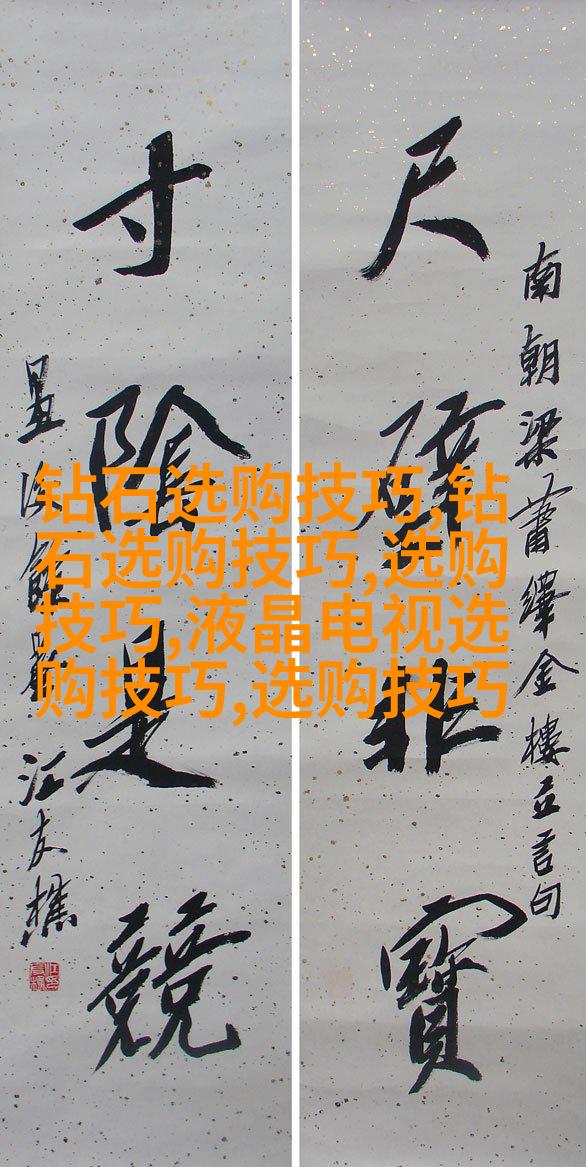 钻石选购技巧,钻
石选购技巧,选购
技巧,液晶电视选
购技巧,选购技巧
南朝梁蕭繹金樓立言句
尺璧非寶
寸陰是競
江友樵